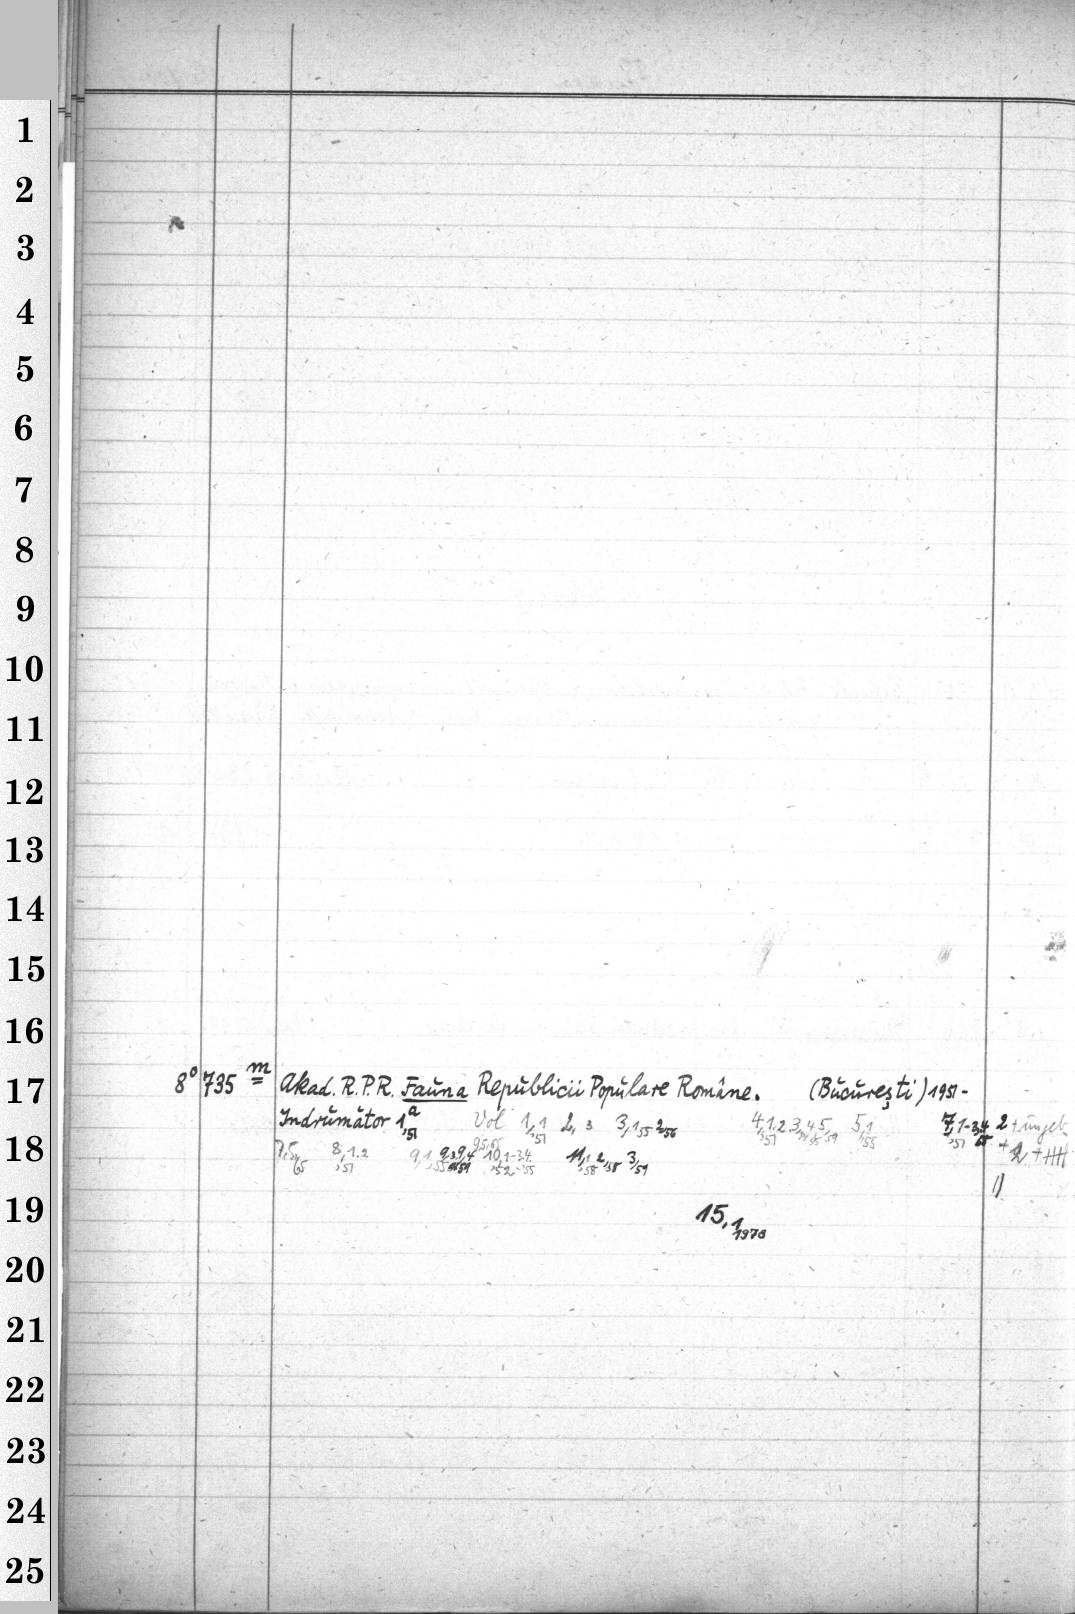 1
2
3
4
5
6
7
8
9
10
11
12
13
14
15
16
17 8° 735 m Akad. R.P.R. Fauna Republicii Populare Române. (București) 1951-
Indrumător 1,a 51 Vol 1,1 ,51 2, 3 3,1,55 2,56 4,1.2 ,51 3, 4, 5, 59 5,1 ,55 7,1-3,4 2 + ungeb.
18 7,5,65 8,1.2 ,51 9,1,55 9,3,4 9,5,65 10,1-3.4 11,1 ,58 2,58 3,59 + 2 +
19 15,1 1970
20
21
22
23
24
25